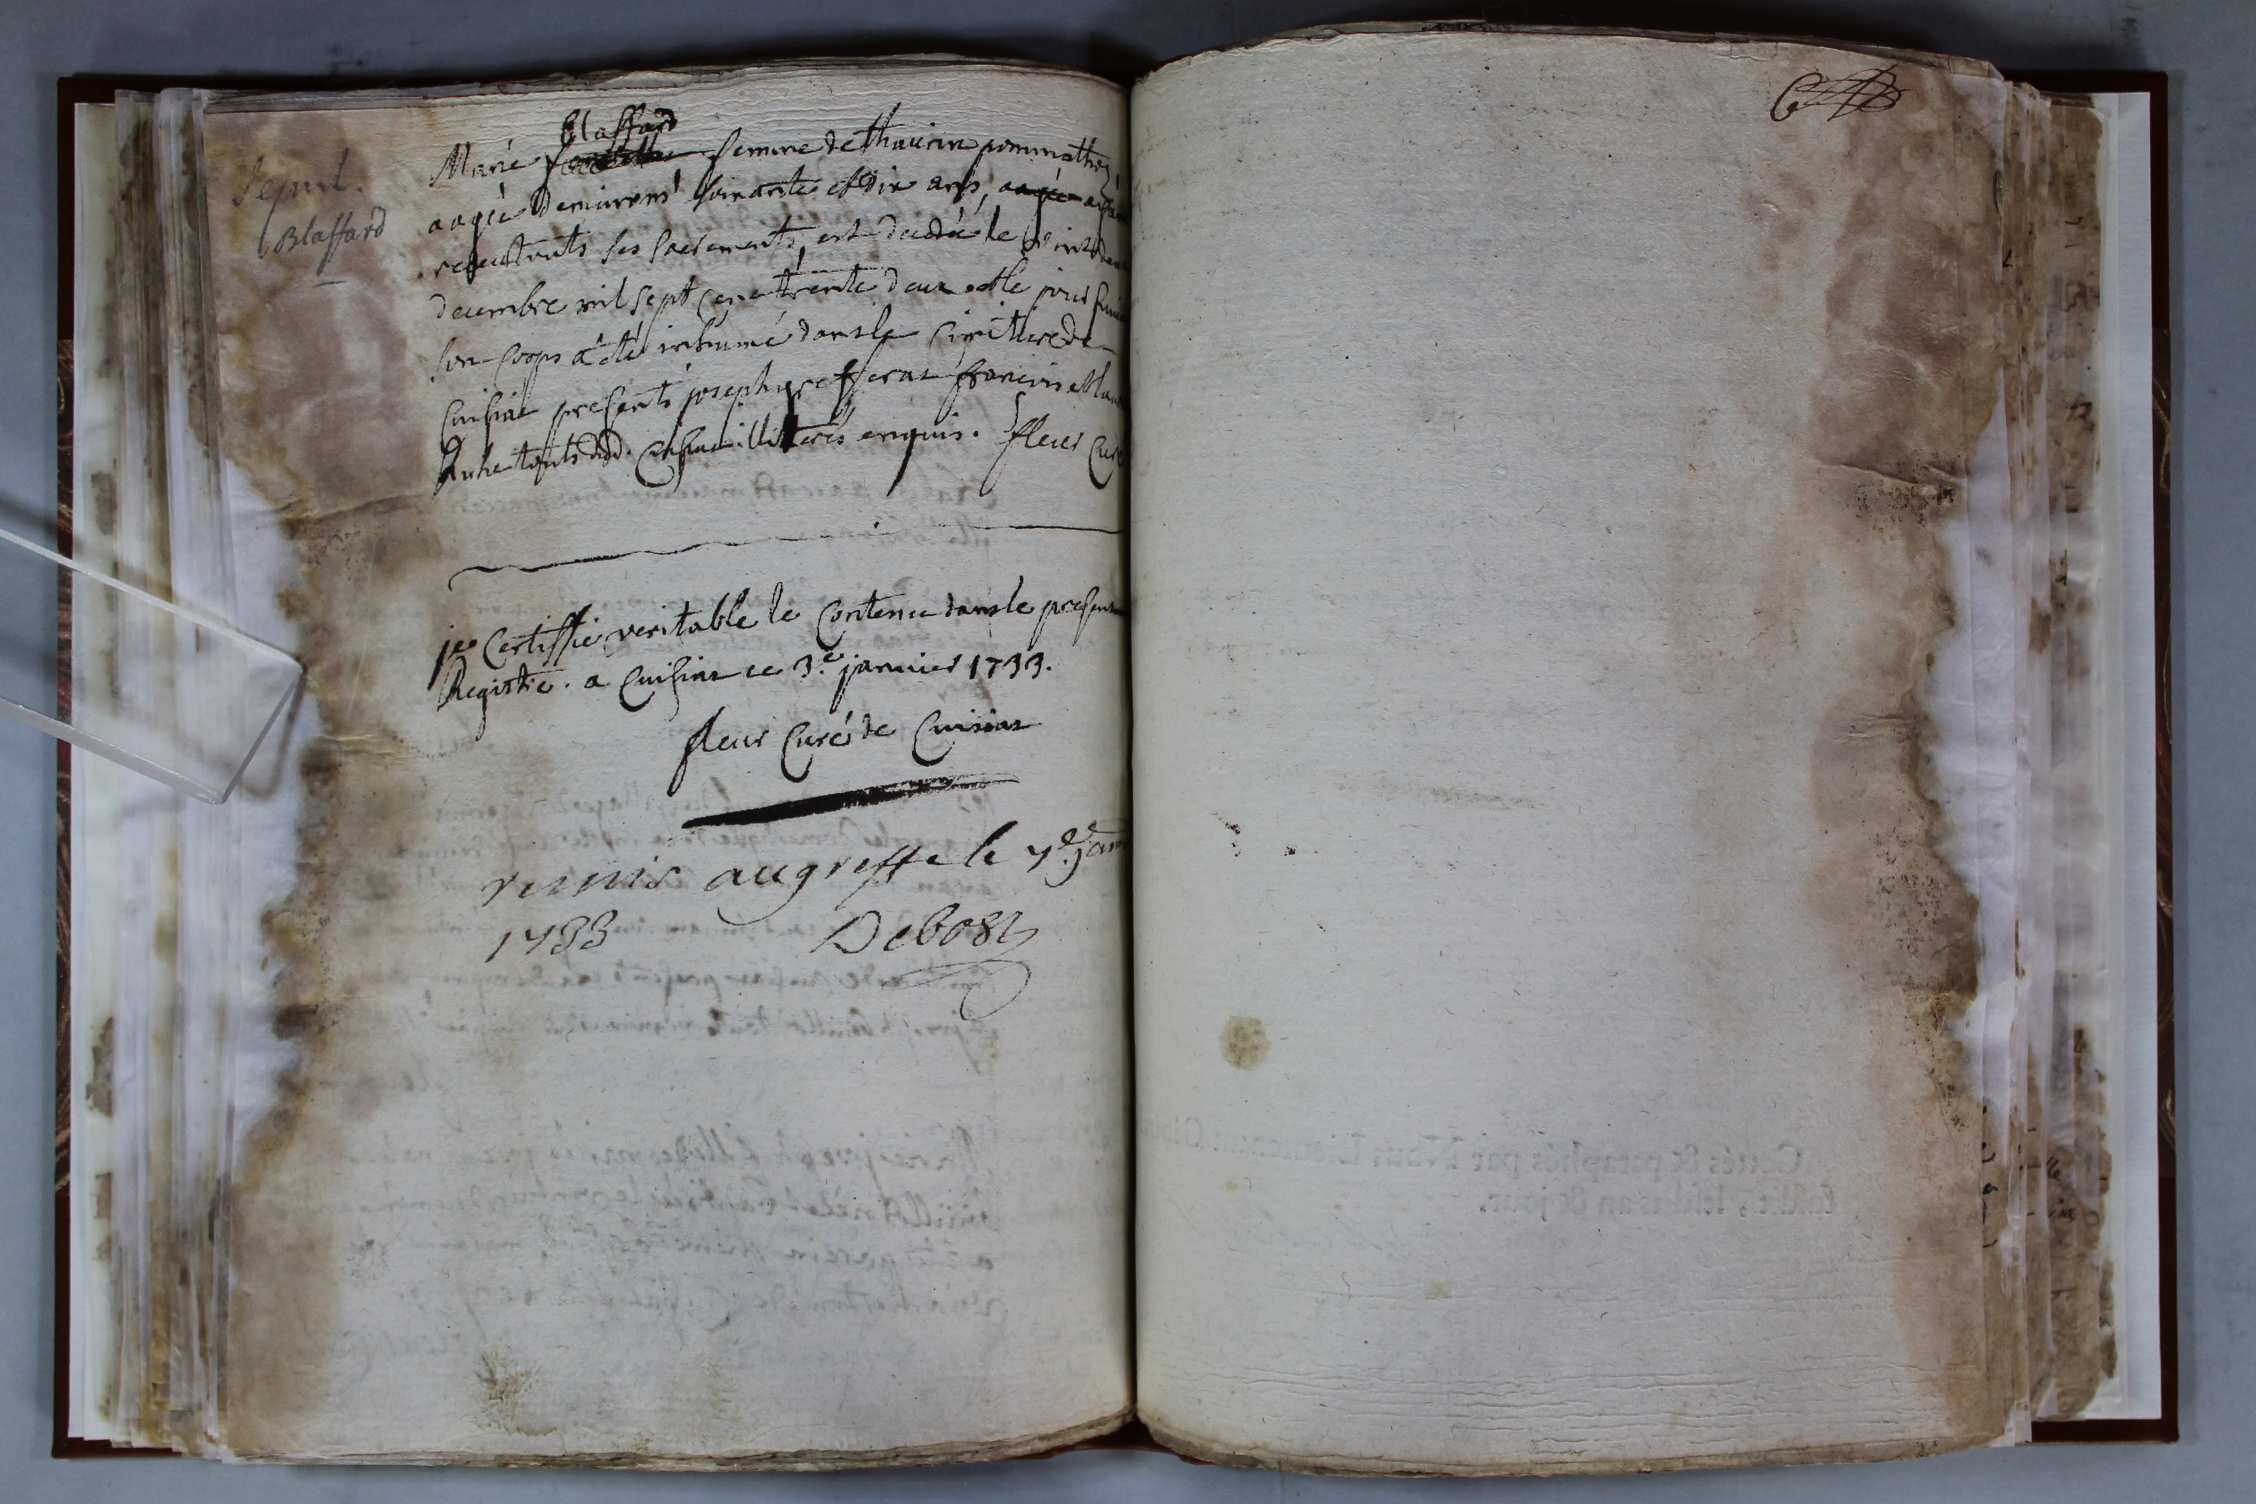 Sepul.
Blaffard
Blaffard
Marie femme de thaurin pommathey
aagée d'environ soixante et dix ans, aagée
receu touts ses sacrements, est decedée le vint deux
decembre mil sept cent trente deux et le jour
son corps a été inhumé dans le cimitiere de
Cuisia presents joseph françois
touts dud. Cuisia illitérés enquis. fleur Curé
je Certiffie veritable le Contenu dans le present
Registre. a Cuisiat ce 3.e janvier 1733.
fleur Curé de Cuisiat
remis au greffe le 7.e janv
1733 Debost
6